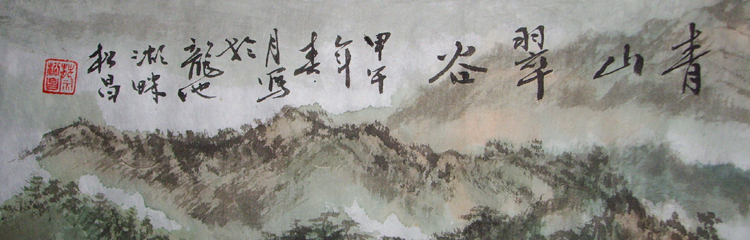 青山翠谷
甲午年春月写於龍池湖畔松昌